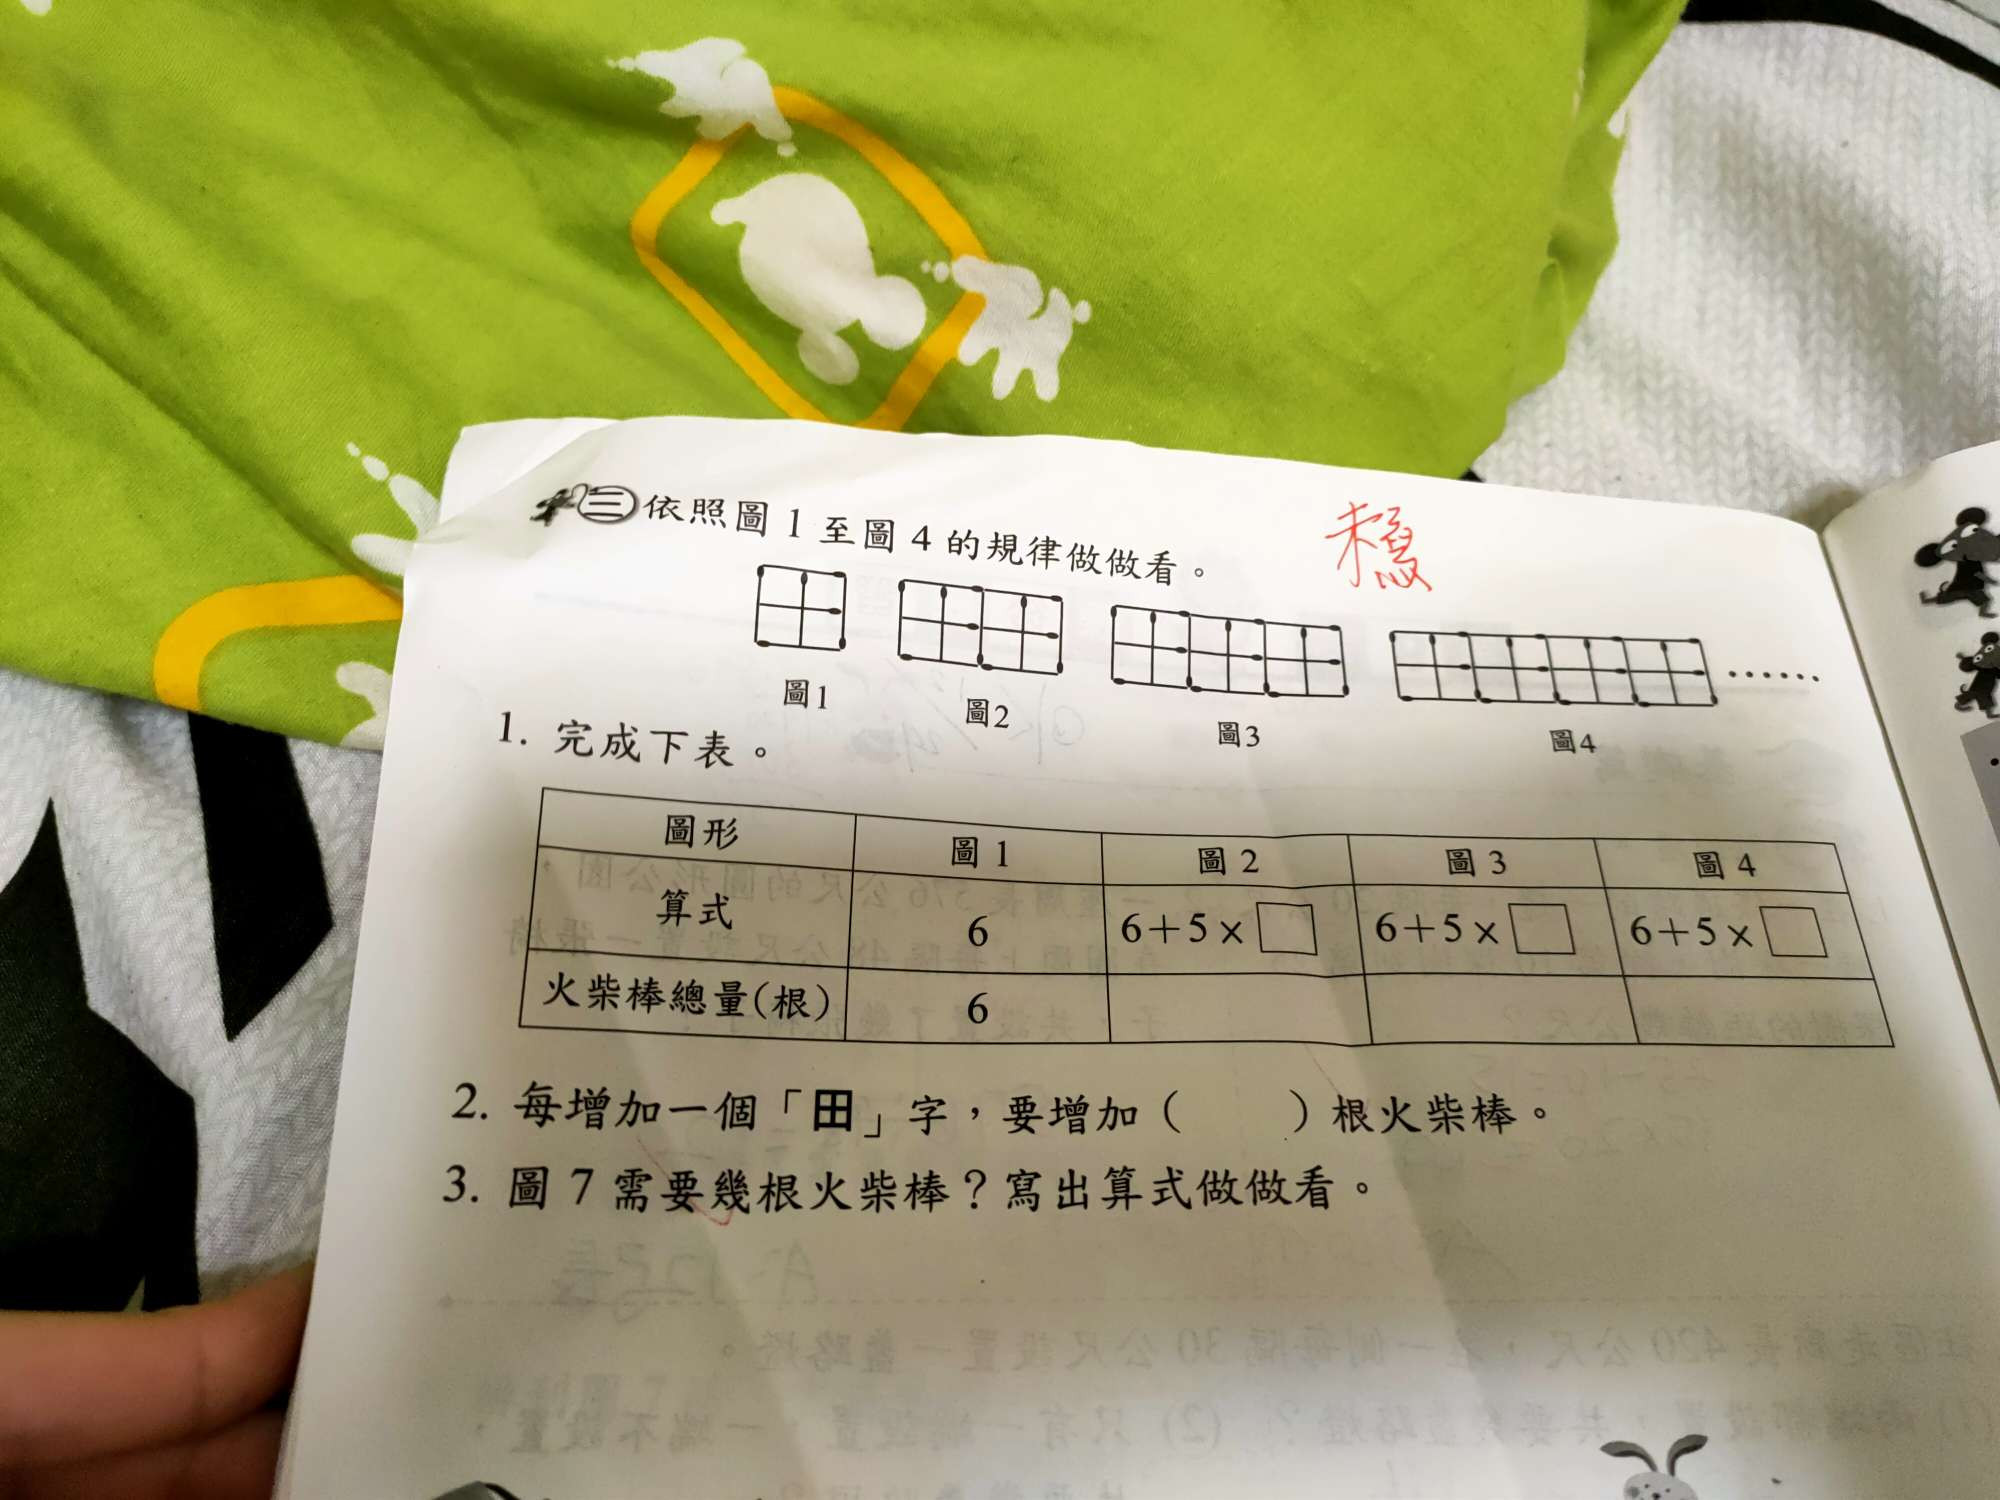 三 依照圖 1 至圖 4 的規律做做看。
未寫
圖1 圖2 圖3 圖4 ……
1. 完成下表。
圖形 圖 1 圖 2 圖 3 圖 4
算式 6 6+5×□ 6+5×□ 6+5×□
火柴棒總量(根) 6
2. 每增加一個「田」字，要增加（ ）根火柴棒。
3. 圖 7 需要幾根火柴棒？寫出算式做做看。